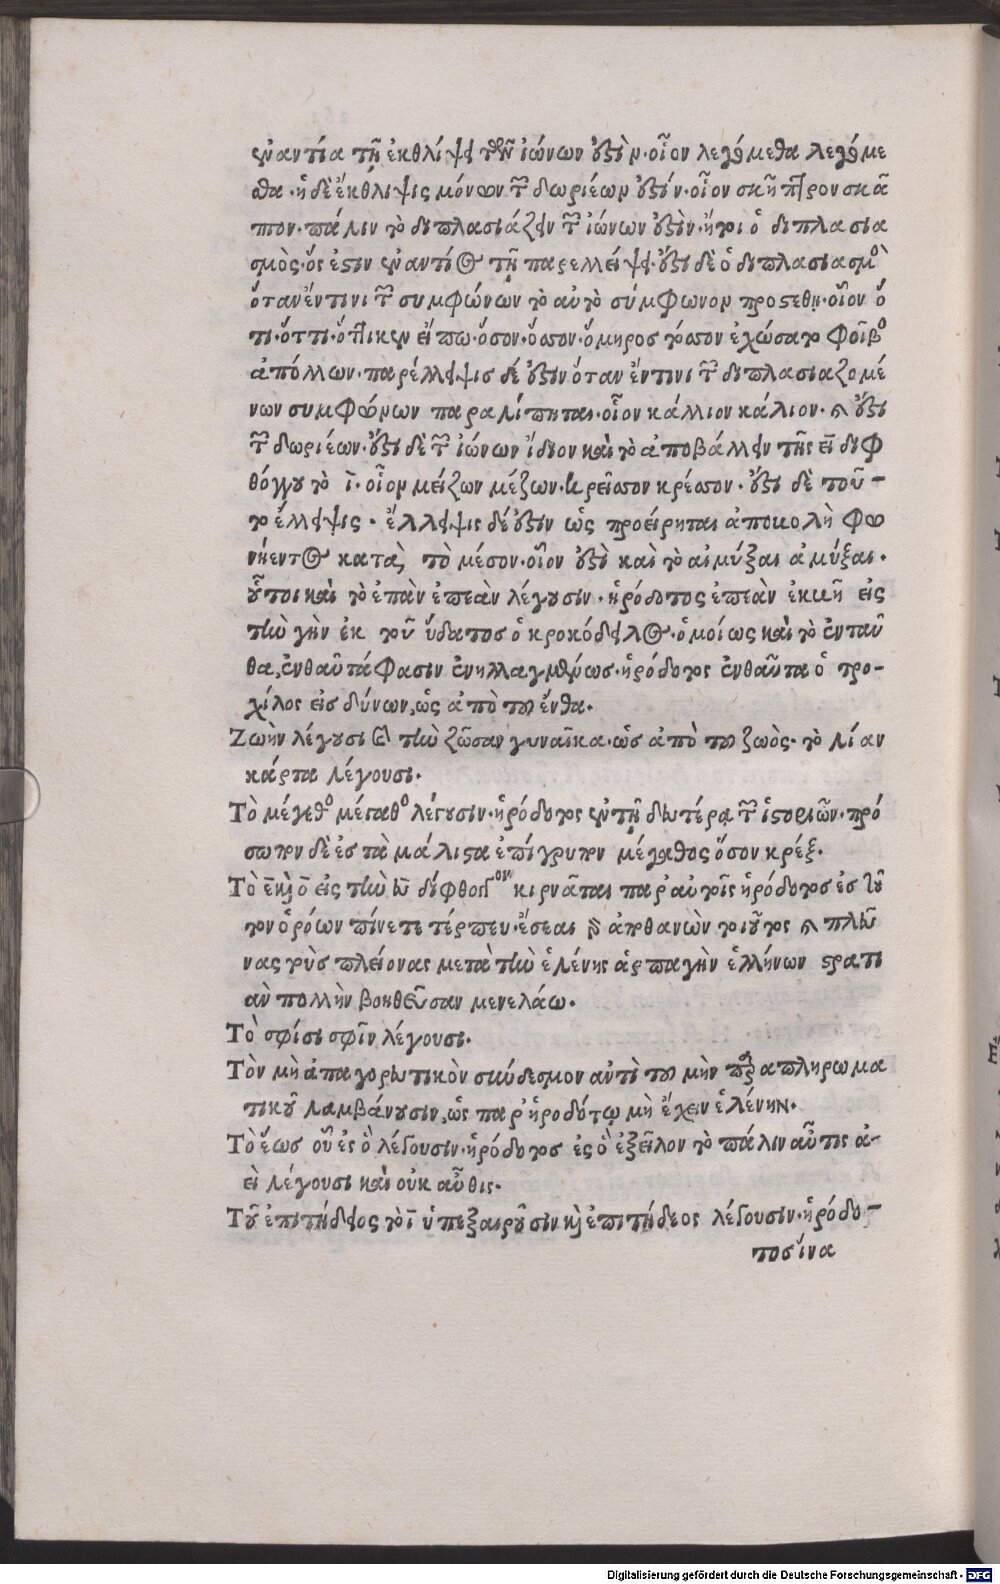 ἐναντία τῇ ἐκθλίψει τῶν ἰώνων ἐστὶν. οἷον λεγόμεθα λεγόμε
θα. ἡ δὲ ἔκθλιψις μόνων τῶν δωριέων ἐστίν. οἷον σκῆπτρον σκᾶ
πτον. πάλιν τὸ διπλασιάζειν τῶν ἰώνων ἐστὶν. ἤτοι ὁ διπλασια
σμὸς. ὅς ἐστιν ἐναντίος τῇ παρελλείψει. ἔστι δὲ ὁ διπλασιασμὸς
ὅταν ἔν τινι τῶν συμφώνων τὸ αὐτὸ σύμφωνον προστεθῇ. οἷον ὅ
τι. ὅττι. ὅππικεν εἴπω. ὅσον. ὅσσον. ὅμηρος τόσσον ἐχώσατο φοῖβος
ἀπόλλων. παρέλλειψις δέ ἐστιν ὅταν ἔν τινι τῶν διπλασιαζομέ
νων συμφώνων παραλίπηται. οἷον κάλλιον κάλιον. καὶ ἔστι
τῶν δωριέων. ἔστι δὲ τῶν ἰώνων ἴδιον καὶ τὸ ἀποβάλλειν τῆς ει διφ
θόγγου τὸ ι. οἷον μείζων μέζων. κρεῖσσον κρέσσον. ἔστι δὲ τοῦ-
το ἔλλειψις. ἔλλειψις δέ ἐστιν ὡς προείρηται ἀποκολὴ φω
νήεντος κατὰ, τὸ μέσον. οἷον ἐστὶ καὶ τὸ αἰμύξαι ἀμύξαι.
οὗτοι καὶ τὸ ἐπὰν ἐπεὰν λέγουσιν. ἡρόδοτος ἐπεὰν ἐκβῇ εἰς
τὴν γὴν ἐκ τοῦ ὕδατος ὁ κροκόδειλος. ὁμοίως καὶ τὸ ἐνταῦ
θα, ἐνθαῦτά φασιν ἐνηλλαγμένως. ἡρόδοτος ἐνθαῦτα ὁ τρο-
χίλος εἰσδύνων, ὡς ἀπὸ τοῦ ἔνθα.
Ζωὴν λέγουσι καὶ τὴν ζῶσαν γυναῖκα. ὡς ἀπὸ τοῦ ζωὸς. τὸ λίαν
κάρτα λέγουσι.
Τὸ μέγεθος μέγαθος λέγουσιν. ἡρόδοτος ἐν τῇ δευτέρᾳ τῶν ἱστοριῶν. πρό
σωπον δὲ ἐς τὰ μάλιστα ἐπίγρυπον μέγαθος ὅσον κρέξ.
Τὸ ε καὶ ο εἰς τὴν ευ δίφθογγον κιρνᾶται παρ αὐτοῖς ἡρόδοτος ἐς τοῦ
τον ὁρόων πίνετε τέρπευ. ἔσεαι γὰρ ἀποθανὼν τοιοῦτος καὶ πλεῦ
νας τοὺς πλείονας μετὰ τὴν ἑλένης ἁρπαγὴν ἑλλήνων στρατι
αὺ πολλὴν βοηθεῦσαν μενελάω.
Τὸ σφίσι σφῖν λέγουσι.
Τὸν μὴ ἀπαγορευτικὸν σύνδεσμον αὐτὶ τοῦ μὴν παραπληρωμα
τικοῦ λαμβάνουσιν, ὡς παρ ἡροδότῳ μὴ ἔχειν ἑλένην.
Τὸ ἕως οὗ ἐς ὃ λέγουσιν. ἡρόδοτος ἐς ὃ ἐξεῖλον τὸ πάλιν αὖτις ἀ-
εὶ λέγουσι καὶ οὐκ αὖθις.
Τοῦ ἐπιτήδειος τὸ ι ὑπεξαιροῦσιν καὶ ἐπιτήδεος λέγουσιν. ἡρόδο-
τος ἵνα
Digitalisierung gefördert durch die Deutsche Forschungsgemeinschaft - DFG